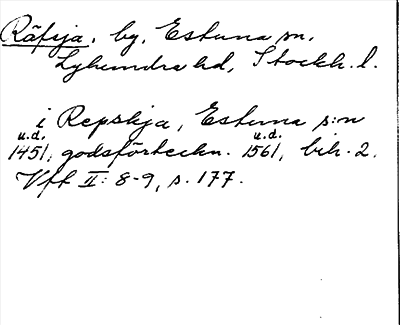 Räfsja, by, Estuna sn,
Lyhundra hd, Stockh. l.
i Repshja, Estuna s:n
u.d. u.d.
1451, godsförteckn. 1561, bih. 2.
Vfl II: 8-9, s. 177.